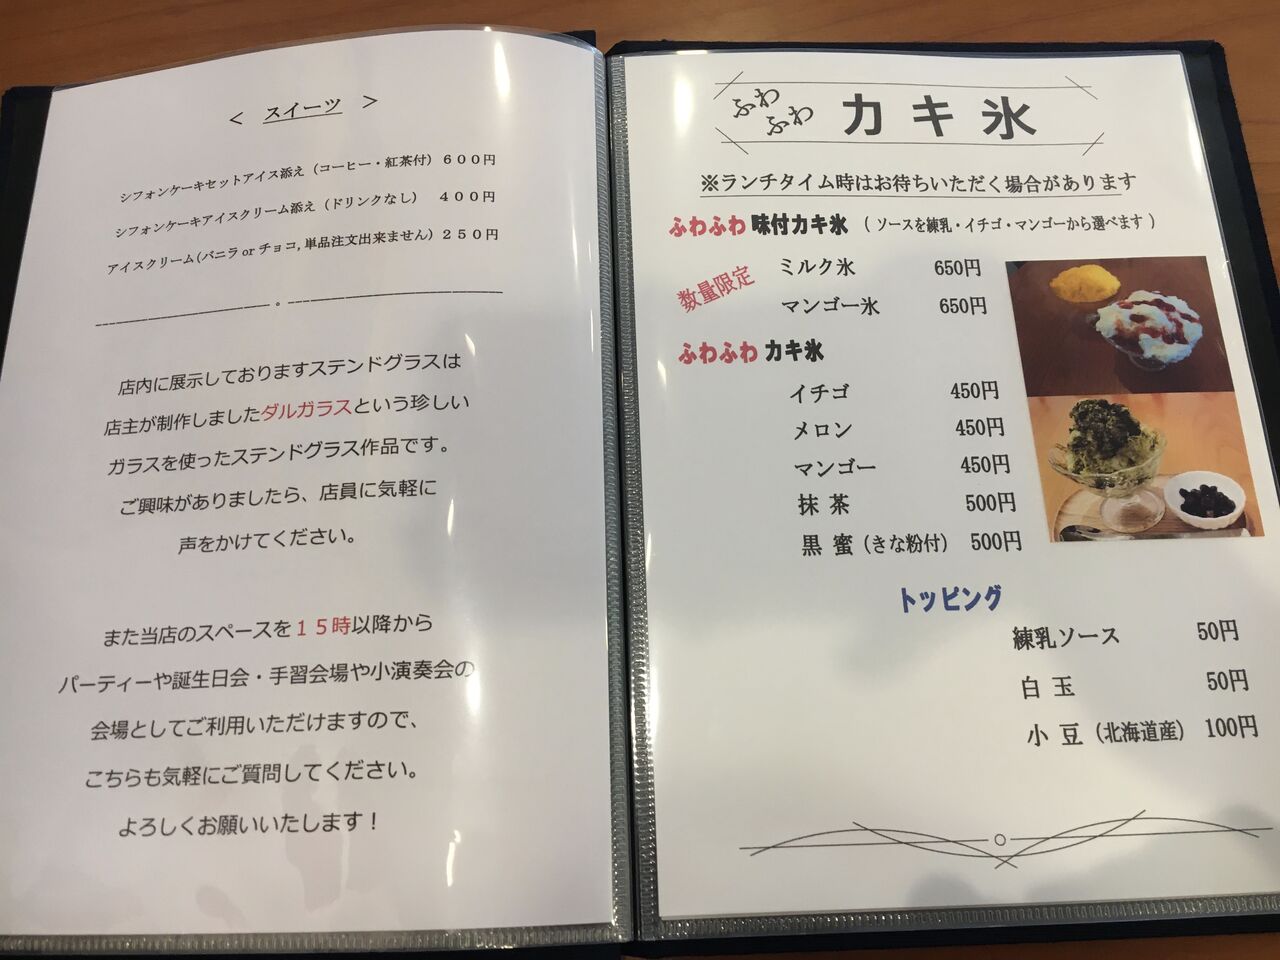 < スイーツ >
シフォンケーキセットアイス添え（コーヒー・紅茶付）６００円
シフォンケーキアイスクリーム添え（ドリンクなし） ４００円
アイスクリーム(バニラ or チョコ, 単品注文出来ません) ２５０円
店内に展示しておりますステンドグラスは
店主が制作しましたダルガラスという珍しい
ガラスを使ったステンドグラス作品です。
ご興味がありましたら、店員に気軽に
声をかけてください。
また当店のスペースを１５時以降から
パーティーや誕生日会・手習会場や小演奏会の
会場としてご利用いただけますので、
こちらも気軽にご質問してください。
よろしくお願いいたします！
ふわふわ カキ氷
※ランチタイム時はお待ちいただく場合があります
ふわふわ 味付カキ氷 （ ソースを練乳・イチゴ・マンゴーから選べます ）
数量限定
ミルク氷 650円
マンゴー氷 650円
ふわふわ カキ氷
イチゴ 450円
メロン 450円
マンゴー 450円
抹 茶 500円
黒 蜜（きな粉付） 500円
トッピング
練乳ソース 50円
白 玉 50円
小 豆（北海道産） 100円